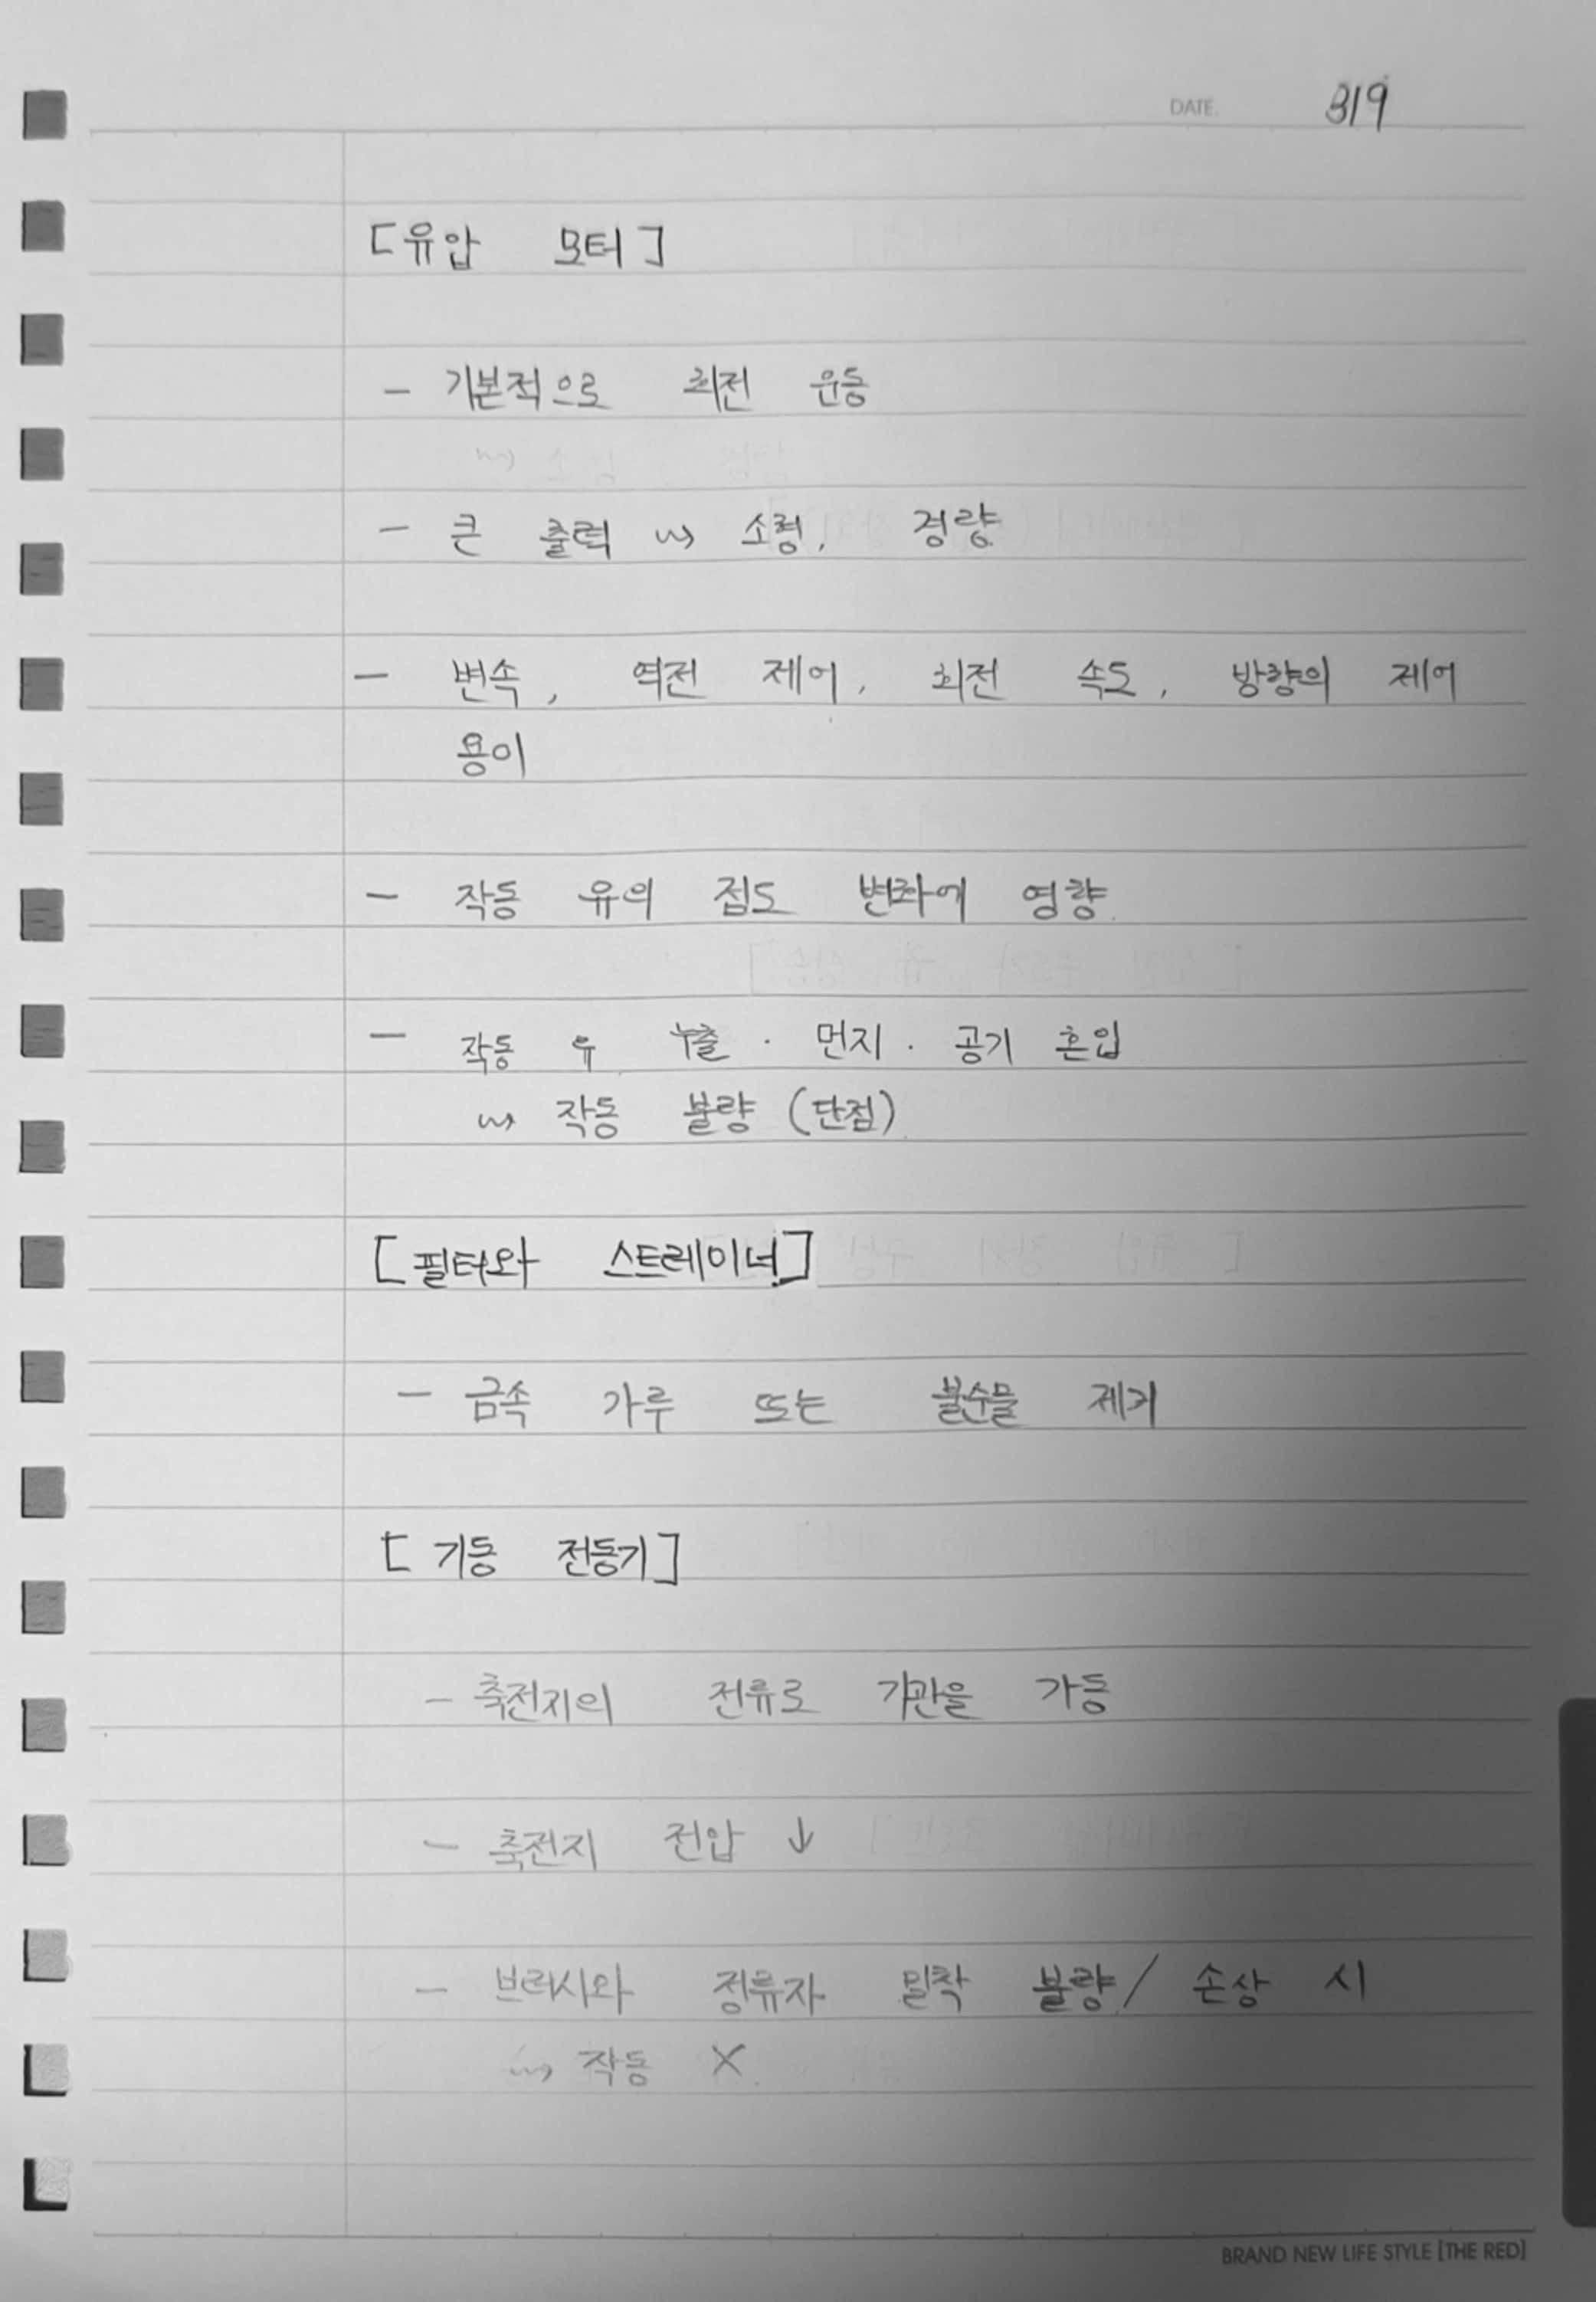 DATE. 3/9
[유압 모터]
- 기본적으로 회전 운동
- 큰 출력 ↝ 소형, 경량
- 변속, 역전 제어, 회전 속도, 방향의 제어
용이
- 작동 유의 점도 변화에 영향
- 작동 유 누출 · 먼지 · 공기 혼입
↝ 작동 불량 (단점)
[필터와 스트레이너]
- 금속 가루 또는 불순물 제거
[기동 전동기]
- 축전지의 전류로 기관을 가동
- 축전지 전압 ↓
- 브러시와 정류자 밀착 불량/ 손상 시
↝ 작동 X
BRAND NEW LIFE STYLE [THE RED]